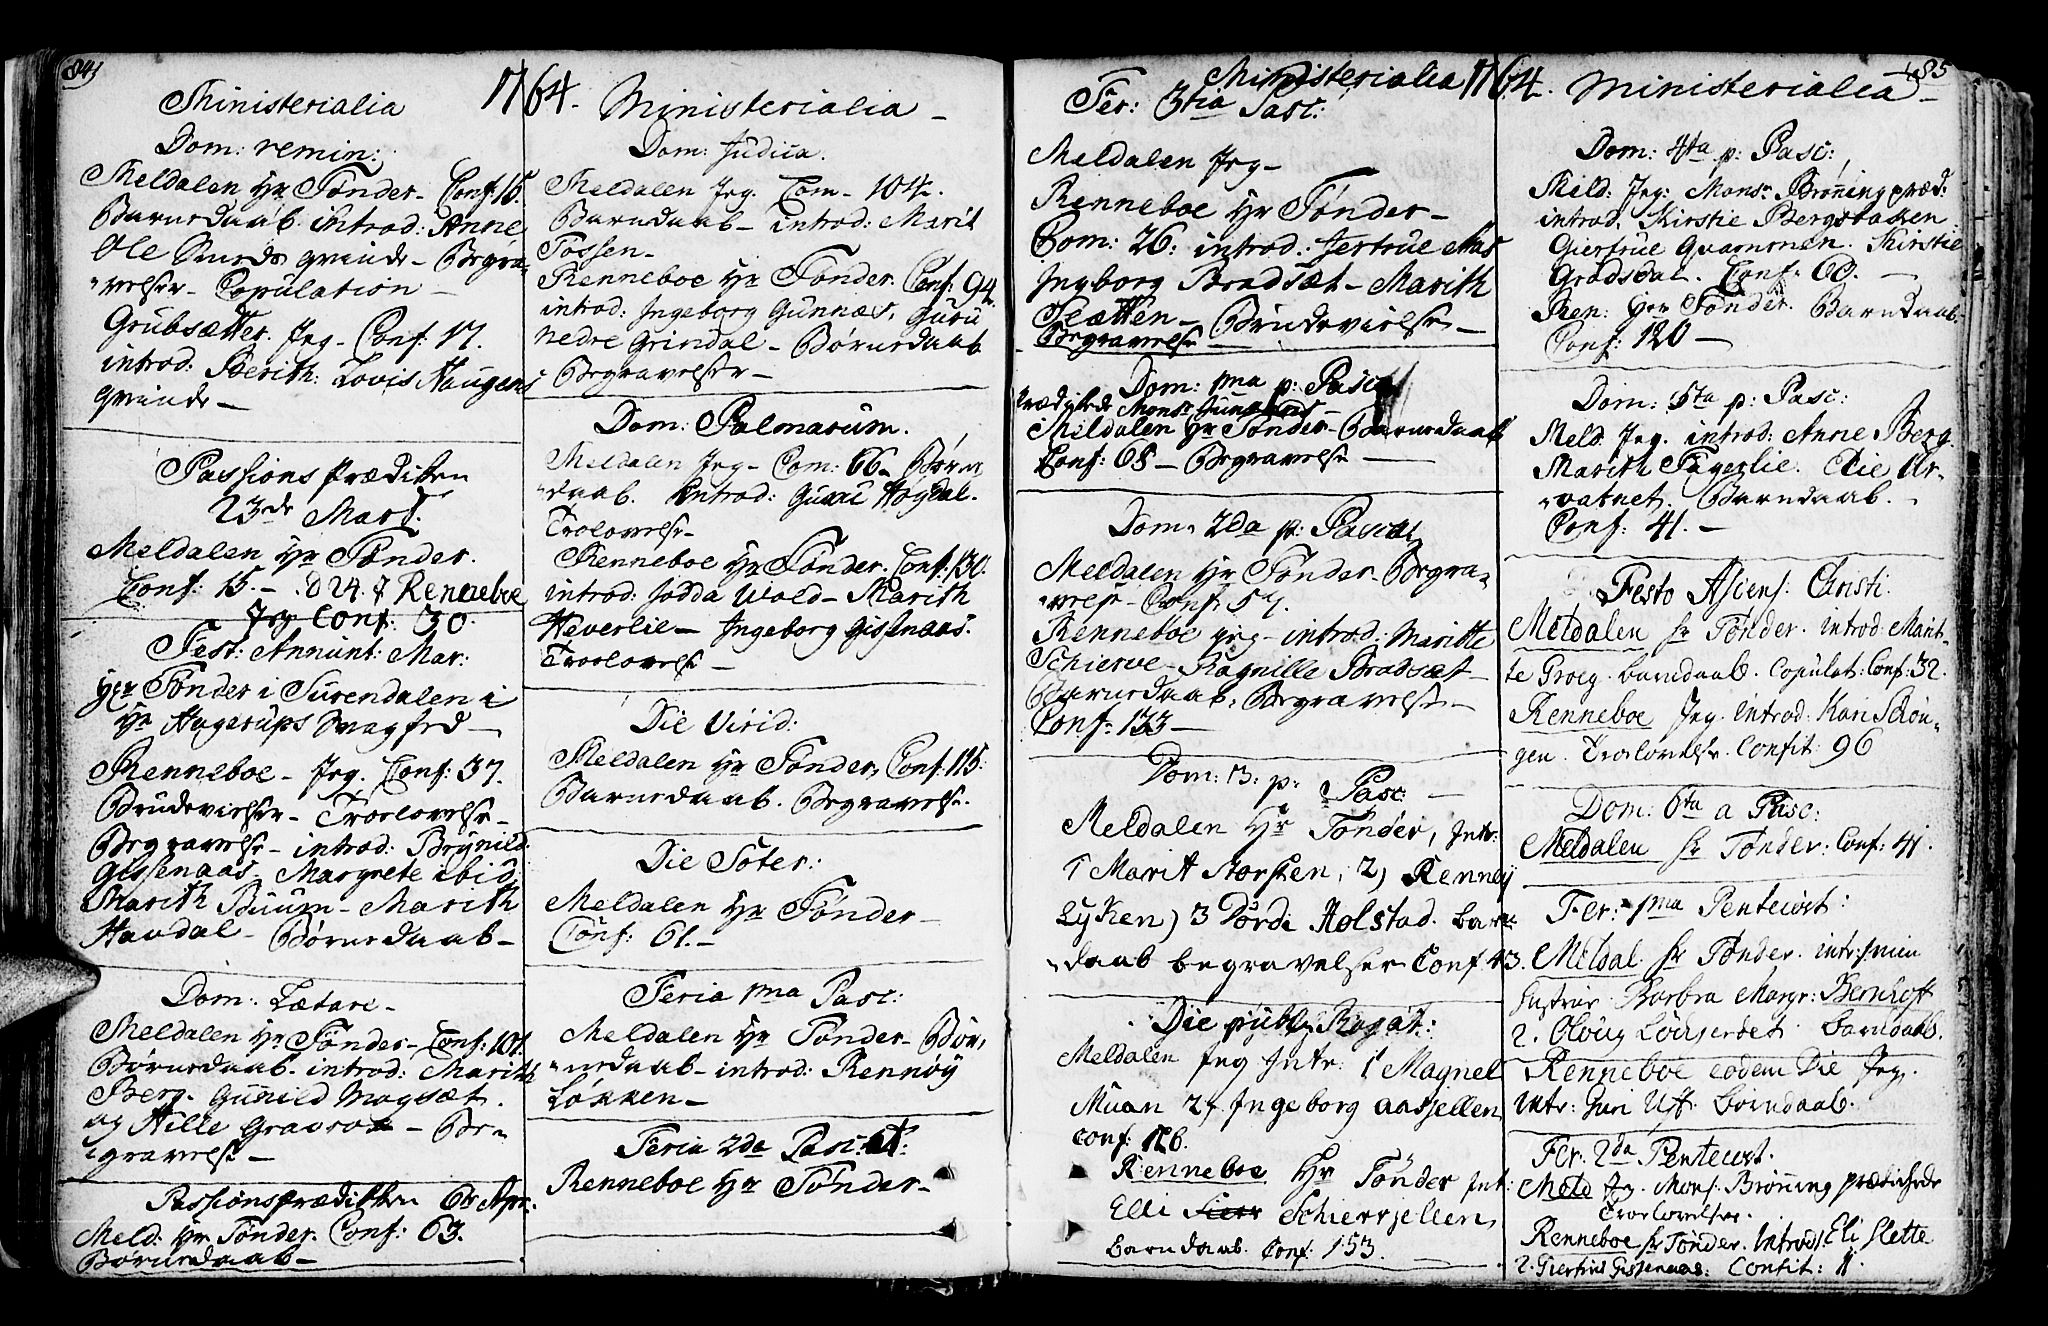 84
Ministerialia 1764. Ministerialia
Dom: remin:
Meldalen Hr Tønder. Conf: 16.
Barnedaab. introd: Anne
Ole qvinde - Begra-
velser - Copulation -
Grubsætter. Jeg - Conf: 17.
introd: Berith: Lovis Haugens
qvinde -
Passions Prædiken
23de Mart.
Meldalen Hr Tønder.
Conf: 15. - D 24 Renneboe
Jeg Conf: 30.
Fest: Annunt: Mar:
Hr Tønder i Surendalen i
Hr Hagerups
Renneboe - Jeg. Conf: 37.
Brudevielser - Troelovelse -
Begravelse - introd: Brynild
Gissenaas. Margrete ibid:
Marith Buum - Marith
Haudal - Børnedaab -
Dom: Lætare -
Meldalen Hr Tønder - Conf: 101.
Børnedaab. introd: Marith
Berg. Gunild Mogsæt.
og Hille Gravrok - Be-
gravelse -
Passionsprædiken 6te Apr:
Meld: Hr Tønder. Conf: 63.
Børnedaab -
Dom: Judica.
Meldalen Jeg. Com - 104.
Barnedaab - introd: Marit
Fossen -
Renneboe Hr Tønder. Conf: 94.
introd: Ingeborg Gunnæs, Guru
nedre Grindal - Børnedaab
Begravelser -
Dom: Palmarum.
Meldalen Jeg - Com: 66 - Børne
daab. introd: Guru Høgdal.
Troelovelse -
Renneboe Hr Tønder. Conf: 130.
introd: Jodda Wold - Marith
Heverlie - Ingeborg Gissenaas.
Troelovelse -
Die Virid:
Meldalen Hr Tønder, Conf: 115:
Barnedaab. Begravelse.
Die Soter:
Meldalen Hr Tønder -
Conf: 61. -
Feria 1ma Pasc:
Meldalen Hr Tønder - Bør-
nedaab - introd: Rennøy
Løkken -
Feria 2da Pascat:
Renneboe Hr Tønder -
Ministerialia 1764. Ministerialia 85
Fer: 3tia Pasc:
Meldalen Jeg -
Renneboe Hr Tønder -
Com: 26: introd: Jertrue Aas
Ingborg Bradsæt - Marith
Slætten - Brudevielse -
Begravelse
Dom: 1ma p: Pasca
Prædikede Mons:
Meldalen Hr Tønder - Barnedaab
Conf: 68 - Begravelse -
Dom: 2da p: Pasca
Meldalen Hr Tønder. Begra-
velse - Conf: 57.
Renneboe Jeg - introd: Maritte
Schierve - Ragnille Bradsæt -
Barnedaab, Begravelse -
Conf: 133 -
Dom: 3: p: Pasc: -
Meldalen Hr Tønder, Intr:
1 Marit Storsteen, 2) Renney
Lyken) 3 Dordi Holstad. Barne
daab begravelser Conf: 43.
Die publ: Rogat:
Meldalen Jeg Intr: 1 Magnel
Muan 2, Ingeborg aasjellen
Conf: 126.
Renneboe Hr Tønder Int:
Elli Schierrjellen,
Barndaab. Conf: 153.
Dom: 4ta p: Pasc:
Meld: Jeg: Monsr Brøning præd:
introd. Kirstie Bergsbakken
Giertrue Qvarnmoen. Kirstie
Gradsdal. Conf: 68. -
Ren: Hr Tønder. Barndaab -
Conf: 120 -
Dom: 5ta p: Pasc:
Meld: Jeg. introd: Anne Berg.
Marith Fagerlie. Elie Ur-
vatnet. Barndaab. -
Conf: 41. -
Festo Ascens: Christi.
Meldalen Hr Tønder. introd: Marit-
te Groeg. barndaab. Copulat: Conf: 32.
Renneboe Jeg. Introd: Kari Schøn-
gen. Troelovelse. Confit: 96
Dom: 6ta a Pasc:
Meldalen Hr Tønder: Conf: 41.
Fer: 1ma Pentecost:
Meldal. Hr Tønder. intr: 1 min
Hustrue Barbra Margr: Bernhoft
2. Oloug . Barndaab.
Renneboe eodem Die Jeg.
Intr: Guri Uff. Barndaab.
Fer: 2da Pentecost.
Meld Jeg. Mons: Brøning prædichede
Troelovelser.
Renneboe Hr Tønder. Introd: 1. Eli Slette
2. Giertrue Gissenaas: Confit: 11.